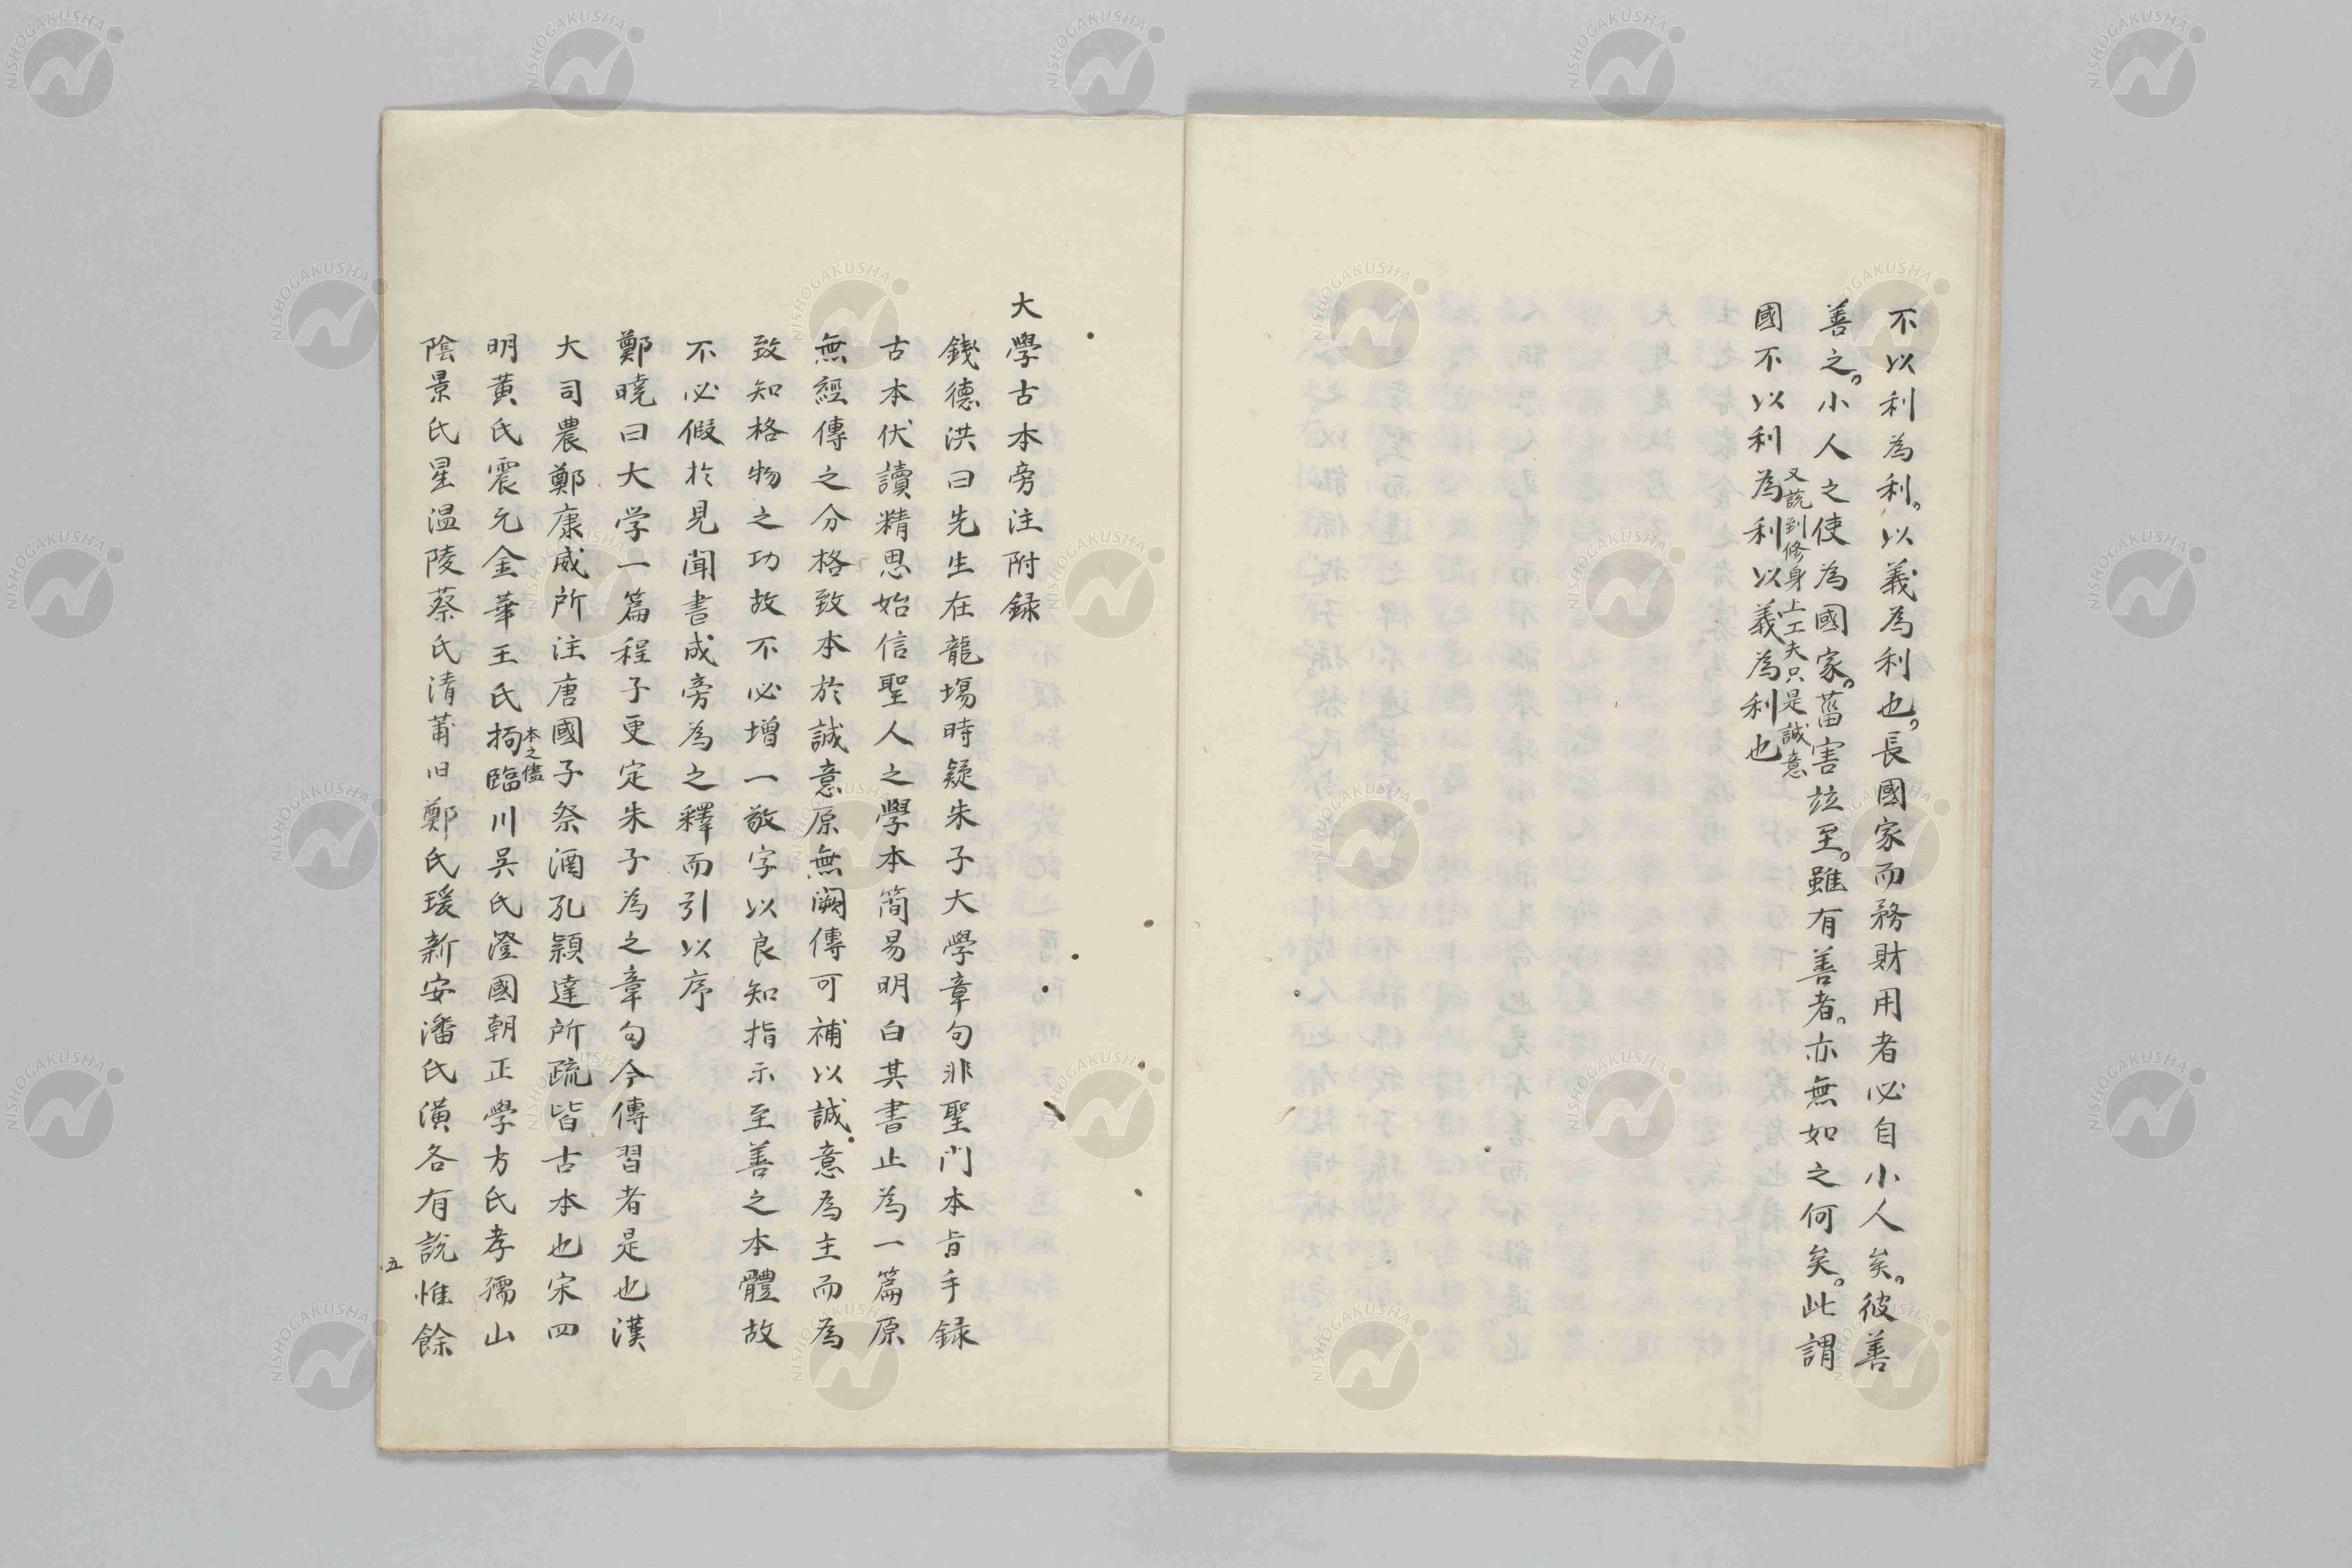 不以利為利。以義為利也。長國家而務財用者必自小人矣。彼善
善之。小人之使為國家。菑害竝至。雖有善者。亦無如之何矣。此謂
又說到修身上工夫只是誠意
國不以利為利以義為利也
大學古本旁注附録
錢德洪曰先生在龍塲時疑朱子大學章句非聖門本旨手録
古本伏讀精思始信聖人之學本簡易明白其書止為一篇原
無經傳之分格致本於誠意原無闕傳可補以誠意為主而為
致知格物之功故不必增一敬字以良知指示至善之本體故
不必假於見聞書成旁為之釋而引以序
鄭曉曰大学一篇程子更定朱子為之章句今傳習者是也漢
大司農鄭康成所注唐國子祭酒孔穎達所疏皆古本也宋四
本之儘
明黃氏震元金華王氏拘臨川吳氏澄國朝正學方氏孝孺山
陰景氏星温陵蔡氏清莆旧鄭氏瑗新安潘氏潢各有說惟餘
五
NISHOGAKUSHA